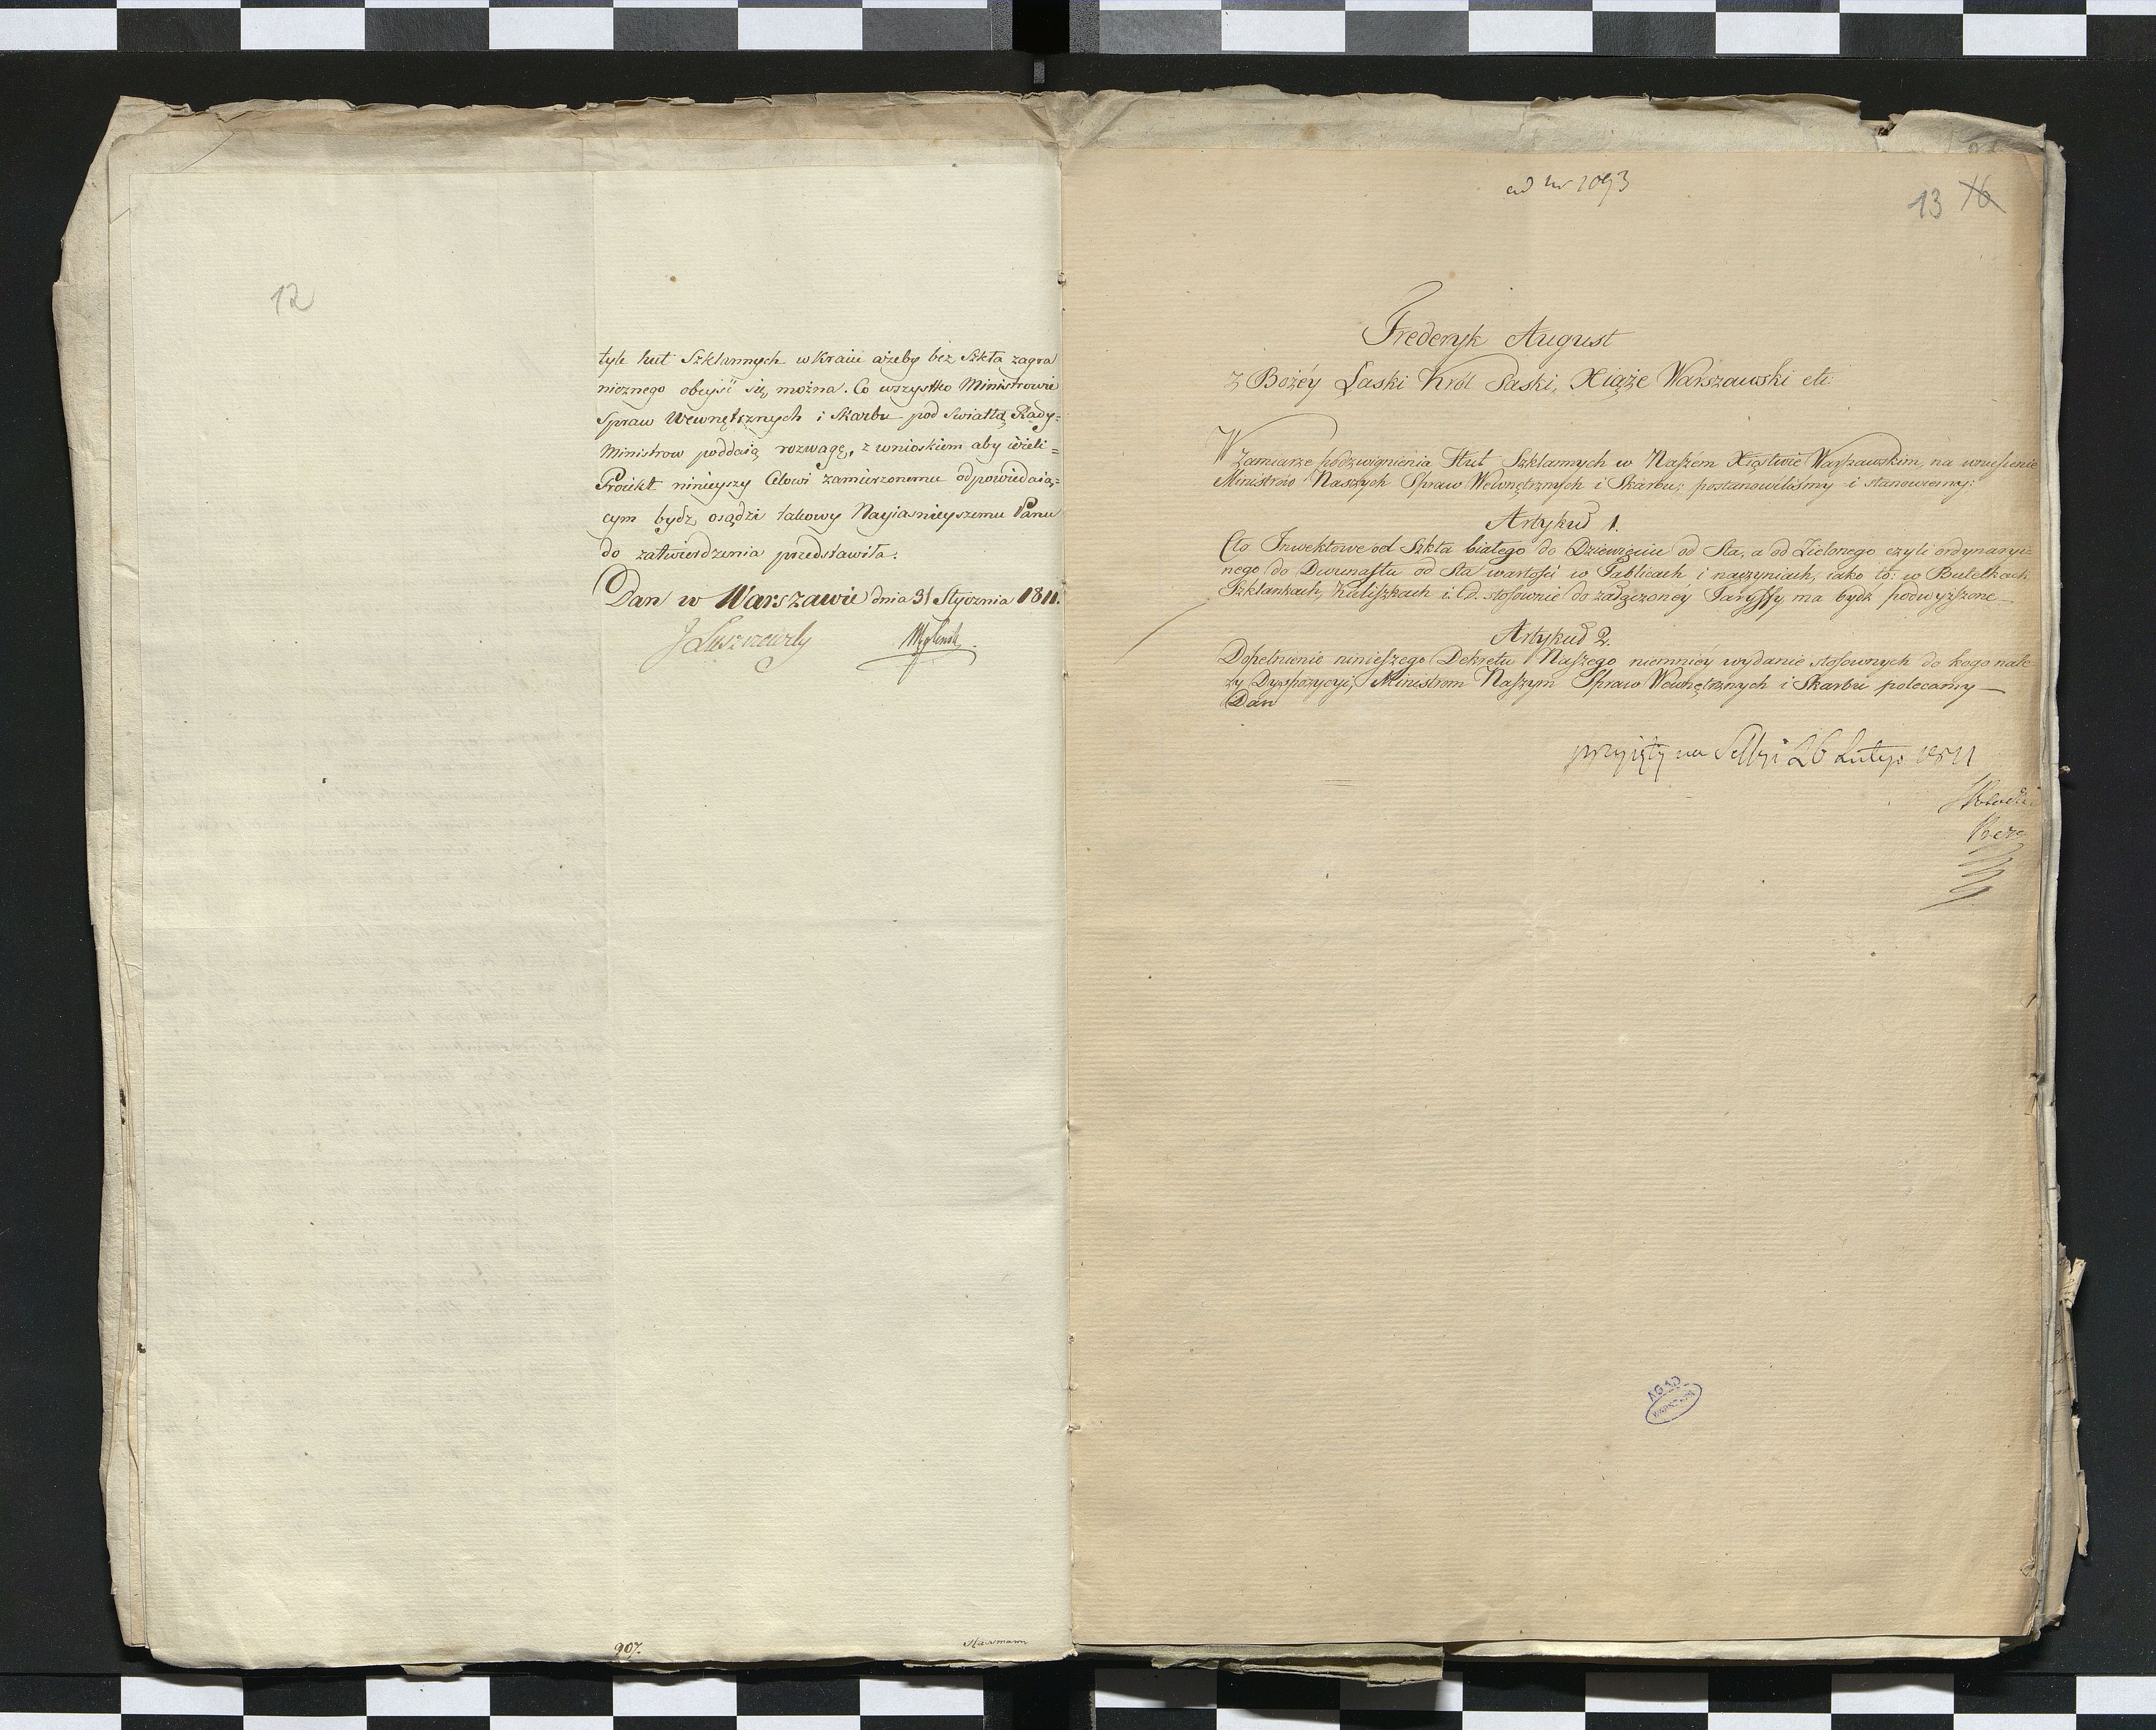 12
tyle hut Szklannych w Kraiu ażeby bez Szkła zagra
nicznego obeyść się można. Co wszystko Ministrowie
Spraw Wewnętrznych i Skarbu pod Swiatłą Rady=
Ministrow poddaią rozwagę, z wnioskiem aby ieżeli=
Proiekt ninieyszy Celowi zamierzonemu odpowiedaią=
cym bydz osądzi takowy Nayiasnieyszemu Panu
do zatwierdzenia przedstawiła.
Dan w Warszawie dnia 31 Stycznia 1811.
J Łuszczewsky
907.
ad nr 1093
13 16
Frederyk August
z Bożéy Laski Król Saski, Xiąże Warszawski etc.
W Zamiarze podzwignienia Hut Szklannych w Naszém Xięstwie Warszawskim, na wniesienie
Ministrów Naszych Spraw Wewnętrznych i Skarbu; postanowiliśmy i stanowiemy:
Artykuł 1.
Cło Inwektowe od Szkła białego do Dziewięciu od Sta, a od Zielonego czyli ordynaryi=
nego do Dwunastu od Sta wartości w Tablicach i naczyniach, iako to: w Butelkach
Szklankach, Kieliszkach i t.d. stosownie do załączoney Taryffy, ma bydź podwyższone
Artykuł 2.
Dopełnienie ninieszego Dekretu Naszego niemniéy wydanie stosownych do kogo nale
ży Dyspozycyi, Ministrom Naszym Spraw Wewnętrznych i Skarbu polecamy
Dan
przyięty na Sessyi 26 Lutego 1811
AGAD
WARSZAWA